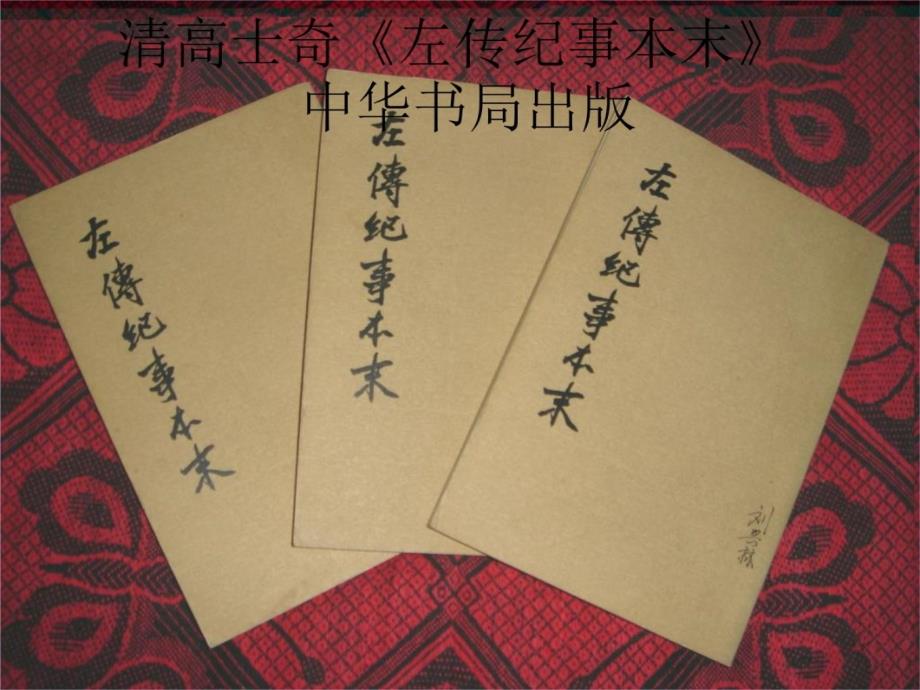 清高士奇《左传纪事本末》
中华书局出版
左傳紀事本末
左傳紀事本末
左傳紀事本末